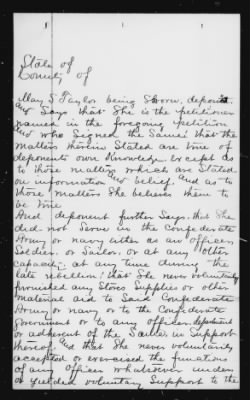 State of
County of
May S Taylor being Sworn, deposes
and Says that She is the petitioner
named in the foregoing petition
and who Signed the Same: that the
matters therein Stated are true of
deponents own Knowledge Except as
to those matters which are Stated
on information and belief, and as to
those matters She believes them to
be true
And deponent further Says, that She
did not Serve in the Confederate
Army or navy either as an officer
Soldier, or Sailor, or at any other
capacity at any time during the
late rebellion: that She never Voluntarily
furnished any Stores Supplies or other
material aid to Said Confederate
Army or navy or to the Confederate
Government or to any officer department
or adherent of the Same in Support
thereof, and that She never voluntarily
accepted or exercised the functions
of any office whatsoever under
or yielded voluntary Support to the